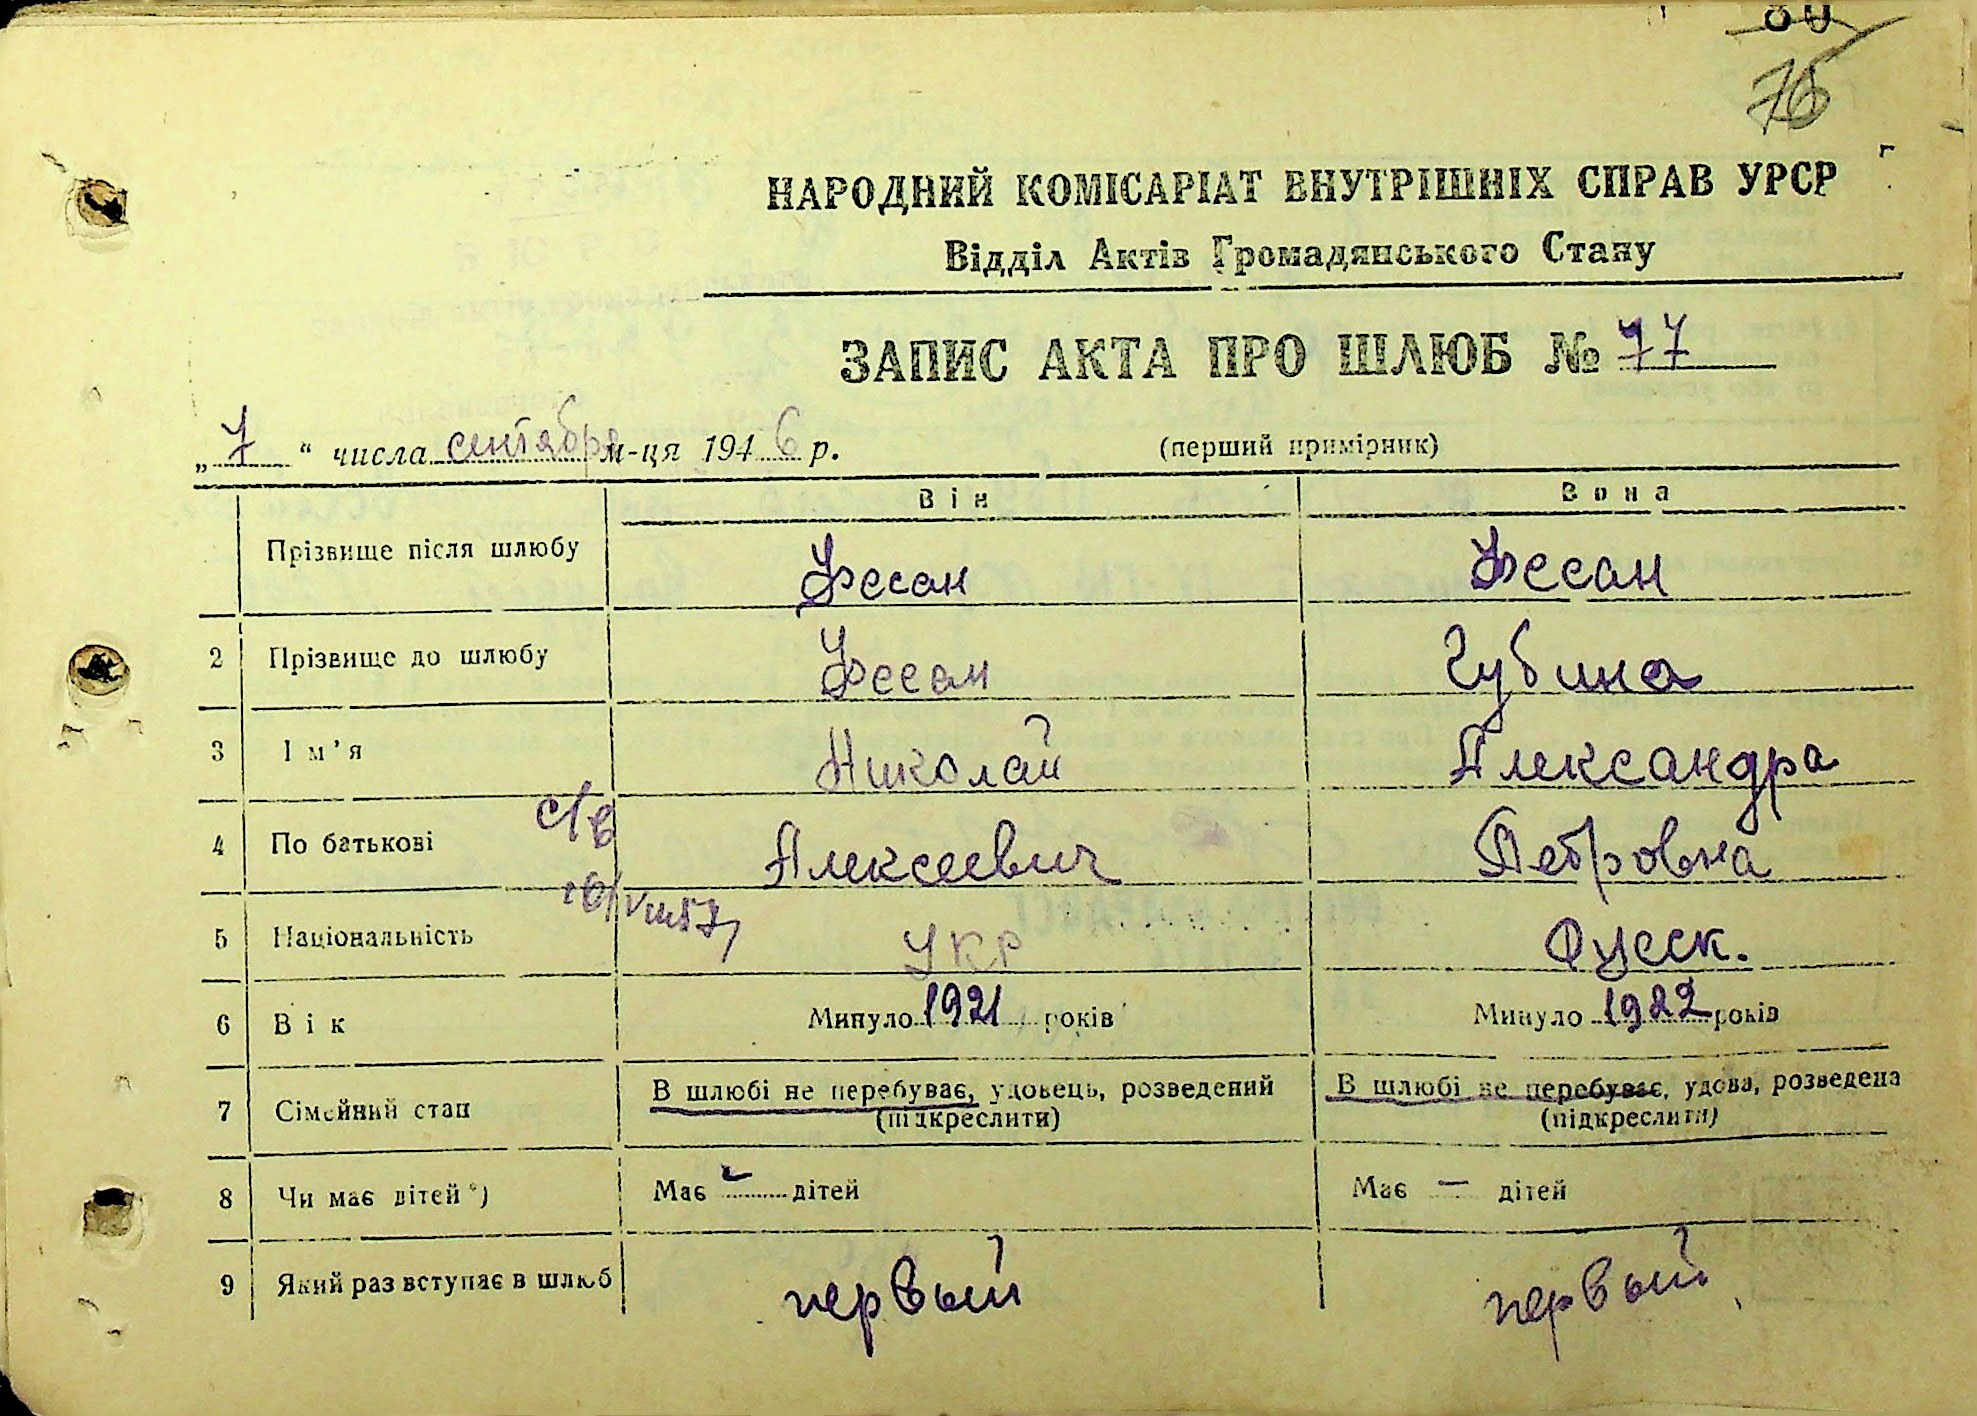 80
76
НАРОДНИЙ КОМІСАРІАТ ВНУТРІШНІХ СПРАВ УРСР
Відділ Актів Громадянського Стану
ЗАПИС АКТА ПРО ШЛЮБ № 77
„ 7 “ числа сентября м-ця 1946 р. (перший примірник)
Він Вона
Прізвище після шлюбу Фесан Фесан
2 Прізвище до шлюбу Фесан Губина
3 Ім’я Николай Александра
4 По батькові Алексеевич Петровна
с/в
5 Національність Укр Русск.
6 Вік Минуло 1921 років Минуло 1922 років
7 Сімейний стан В шлюбі не перебуває, удовець, розведений В шлюбі не перебуває, удова, розведена
(підкреслити) (підкреслити)
8 Чи має дітей*) Має - дітей Має — дітей
9 Який раз вступає в шлюб первый первый